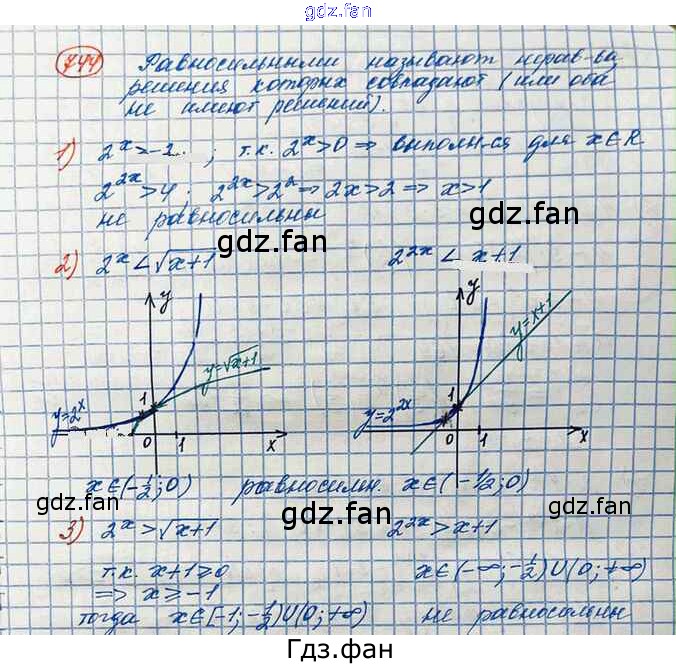 gdz.fan
gdz.fan gdz.fan
744 Равносильными называют нерав-ва
решения которых совпадают (или оба
не имеют решений).
1) 2^x > -2 ; т.к. 2^x > 0 ⇒ выполн-ся для x∈R
2^2x > 4 ; 2^2x > 2^2 ⇒ 2x > 2 ⇒ x > 1
не равносильны
gdz.fan gdz.fan
2) 2^x < √x+1 2^2x < x+1
y y
y=√x+1 y=x+1
1 1
y=2^x y=2^2x
0 1 x 0 1 x
x∈(-1/2; 0) равносильн. x∈(-1/2; 0)
gdz.fan gdz.fan gdz.fan
3) 2^x > √x+1 2^2x > x+1
т.к. x+1 ⩾ 0 x∈(-∞; -1/2)∪(0; +∞)
⇒ x ⩾ -1
тогда x∈[-1; -1/2)∪(0; +∞) не равносильны
Гдз.фан